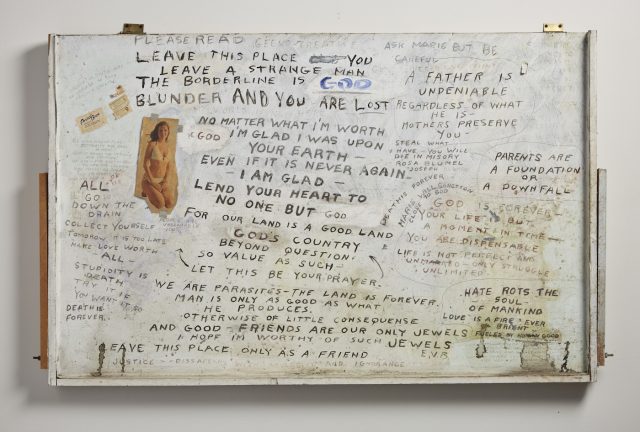 PLEASE READ
LEAVE THIS PLACE YOU
LEAVE A STRANGE MAN
THE BORDERLINE IS GOD
BLUNDER AND YOU ARE LOST
ASK MARIE BUT BE
CAREFUL
A FATHER IS
UNDENIABLE
REGARDLESS OF WHAT
HE IS-
MOTHERS PRESERVE
YOU-
STEAL WHAT
I HAVE-YOU WILL
DIE IN MISORY
ROSA BLUMEL
JOSEPH
NO MATTER WHAT I'M WORTH
GOD I'M GLAD I WAS UPON
YOUR EARTH-
EVEN IF IT IS NEVER AGAIN-
-I AM GLAD-
LEND YOUR HEART TO
NO ONE BUT GOD
FOR OUR LAND IS A GOOD LAND
GOD'S COUNTRY
BEYOND QUESTION
SO VALUE AS SUCH-
LET THIS BE YOUR PRAYER.
PARENTS ARE
A FOUNDATION
OR
A DOWNFALL
DEATH IS FOREVER
MARIE
GOD IS FOREVER
YOUR LIFE IS BUT
A MOMENT IN TIME-
YOU ARE DISPENSABLE
LIFE IS NOT PERFECT AND
ONLY STRUGGLE
UNLIMITED
ALL
GO
DOWN THE
DRAIN
COLLECT YOURSELF
TOMORROW IT IS TOO LATE
MAKE LOVE WORTH
ALL-
STUPIDITY IS
DEATH
TRY IT IF
YOU WANT TO GO
DEATH IS
FOREVER.
WE ARE PARASITES-THE LAND IS FOREVER.
MAN IS ONLY AS GOOD AS WHAT
HE PRODUCES.
OTHERWISE OF LITTLE CONSEQUENSE
AND GOOD-FRIENDS ARE OUR ONLY JEWELS
I HOPE IM WORTHY OF SUCH JEWELS
LEAVE THIS PLACE ONLY AS A FRIEND E.V.B.
HATE ROTS THE
-SOUL-
OF MANKIND
LOVE IS A FIRE EVER
BRIENT
FUELED BY GOOD
JUSTICE AND IGNORANCE